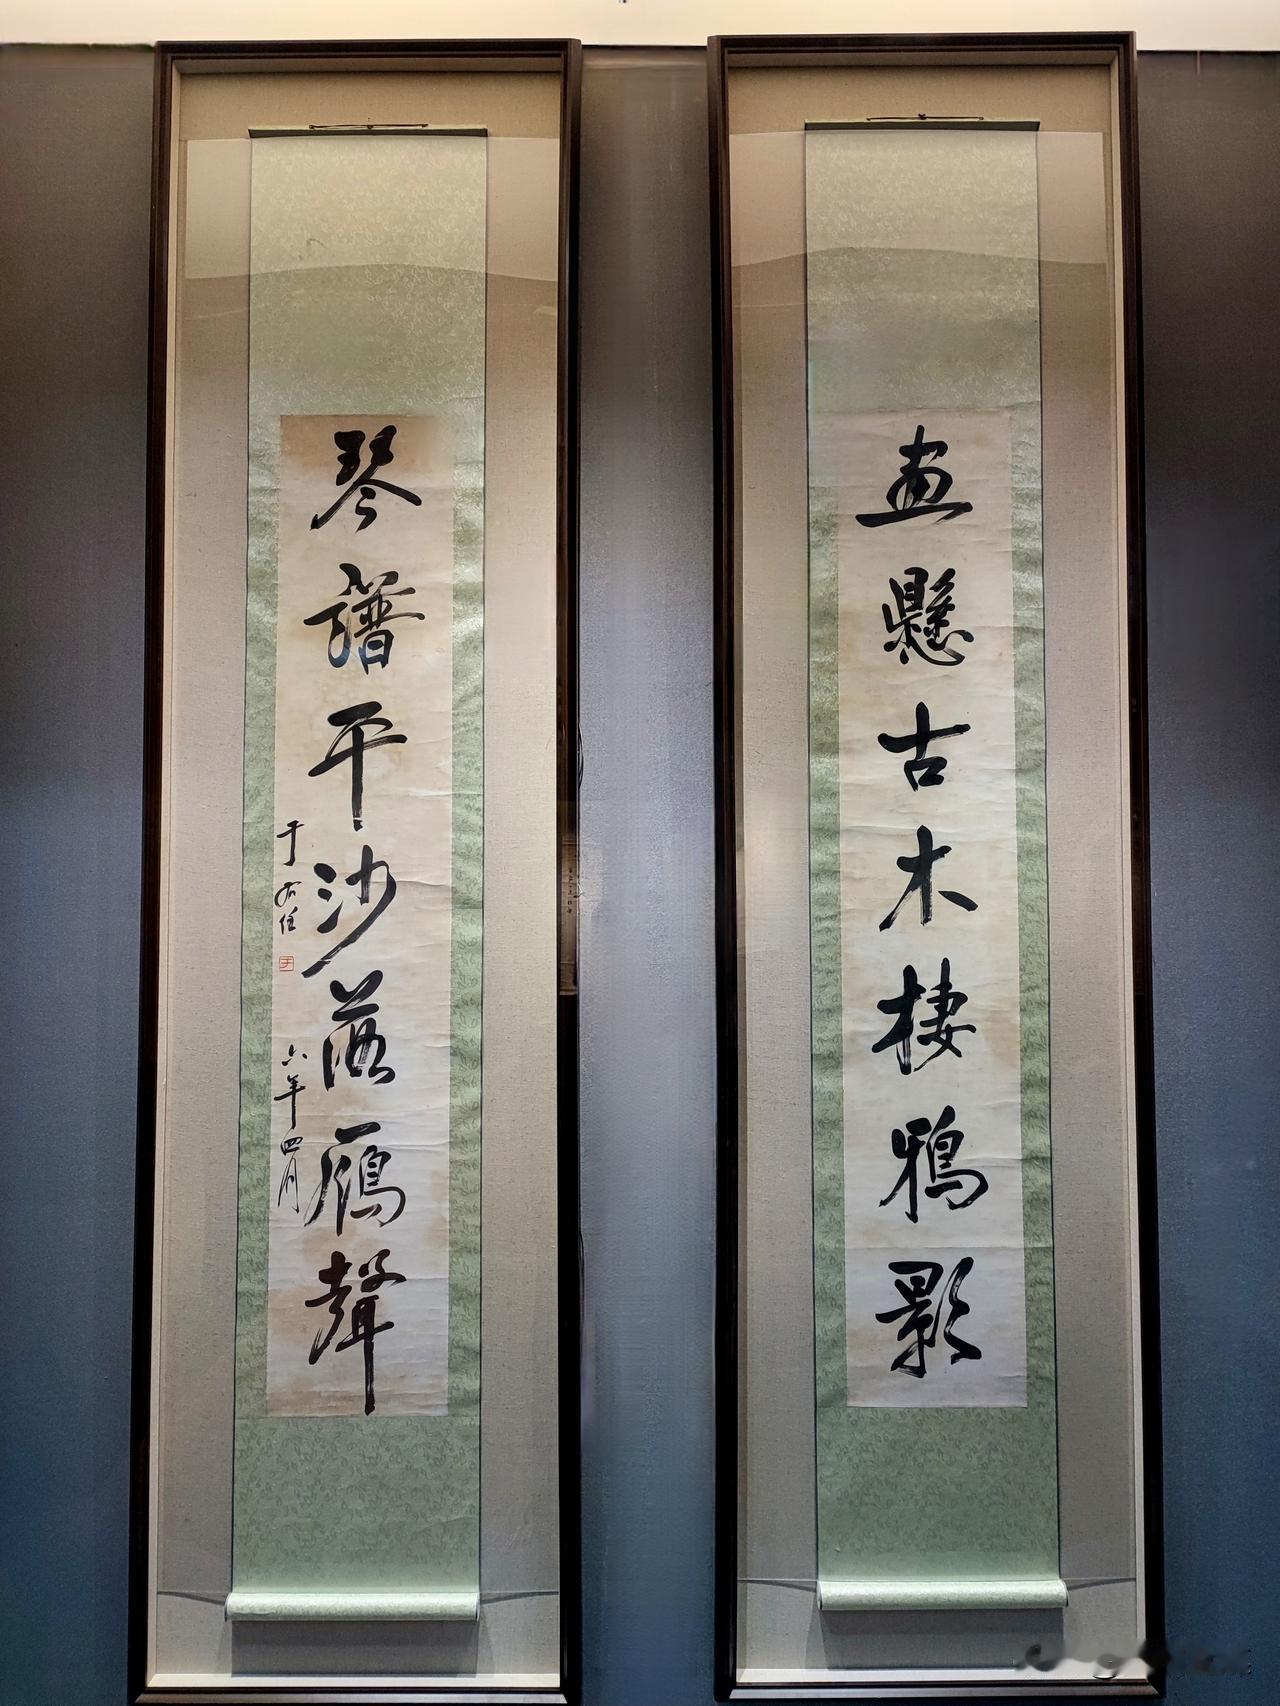 画懸古木棲鴉影
琴譜平沙落鴈聲
于右任
六年四月